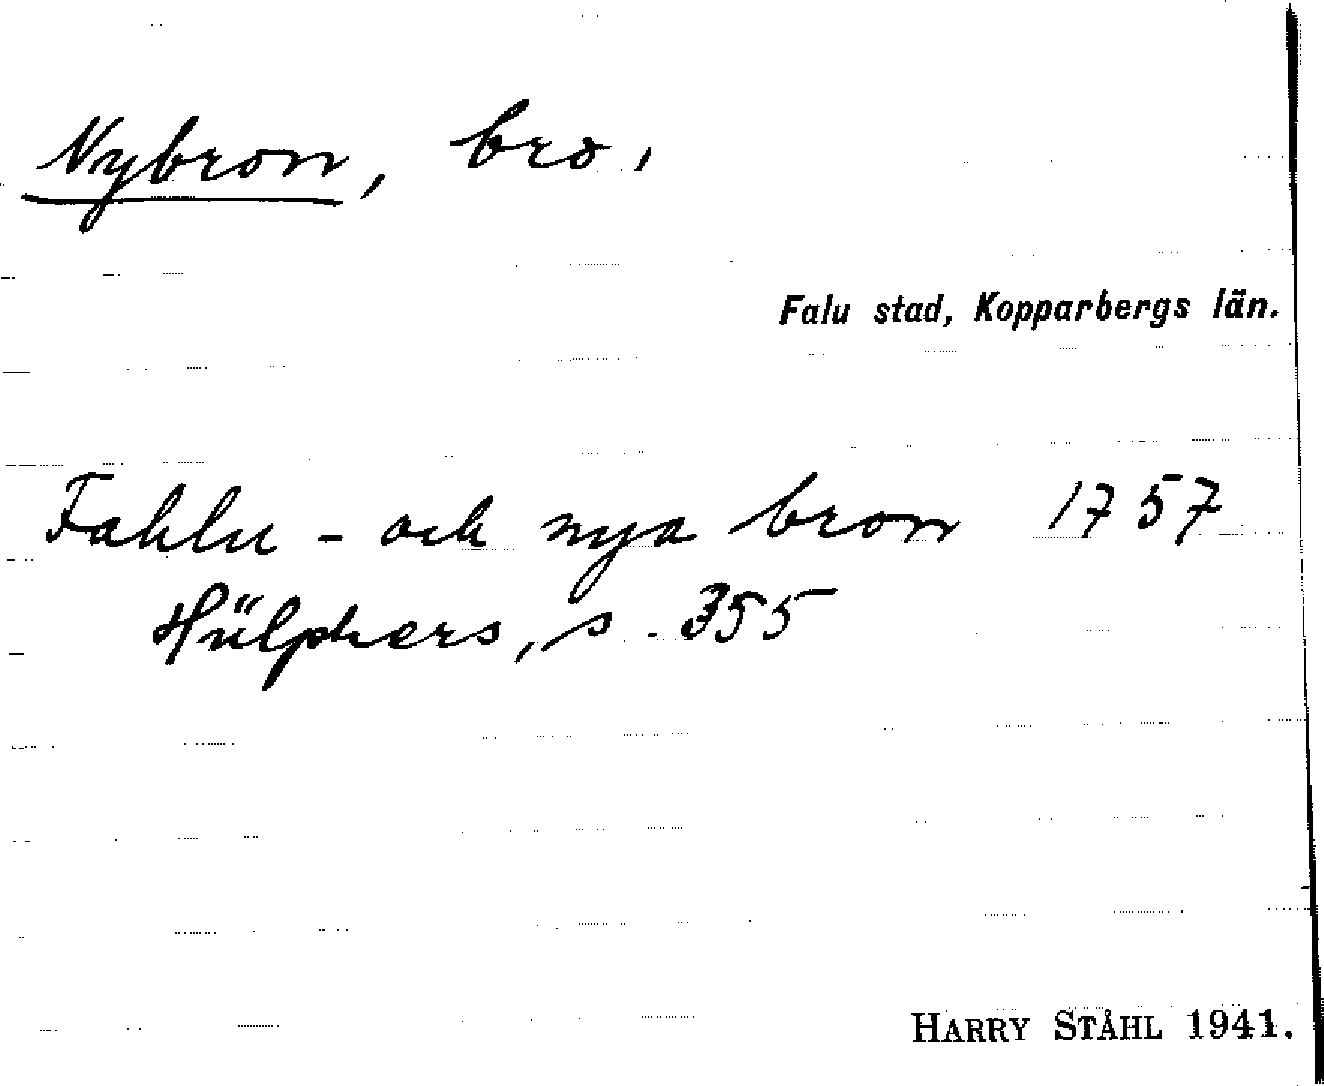 Nybron, bro,
Falu stad, Kopparbergs län.
Fahlu - och nya bron 1757
Hülphers, s. 355
HARRY STÅHL 1941.